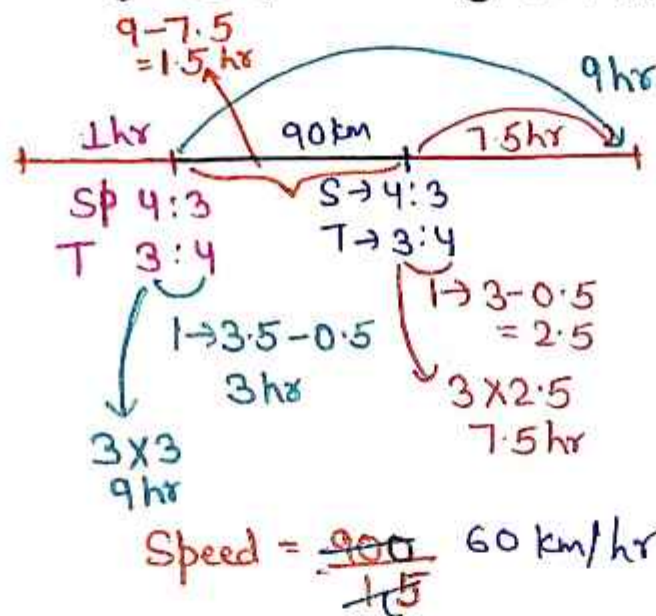 9-7.5
= 1.5 hr
9hr
1hr 90km 7.5hr
Sp 4:3
T 3:4
S→4:3
T→3:4
1→3.5-0.5
3hr
1→3-0.5
= 2.5
3×3
9hr
3×2.5
7.5hr
Speed = 900/15 60 km/hr